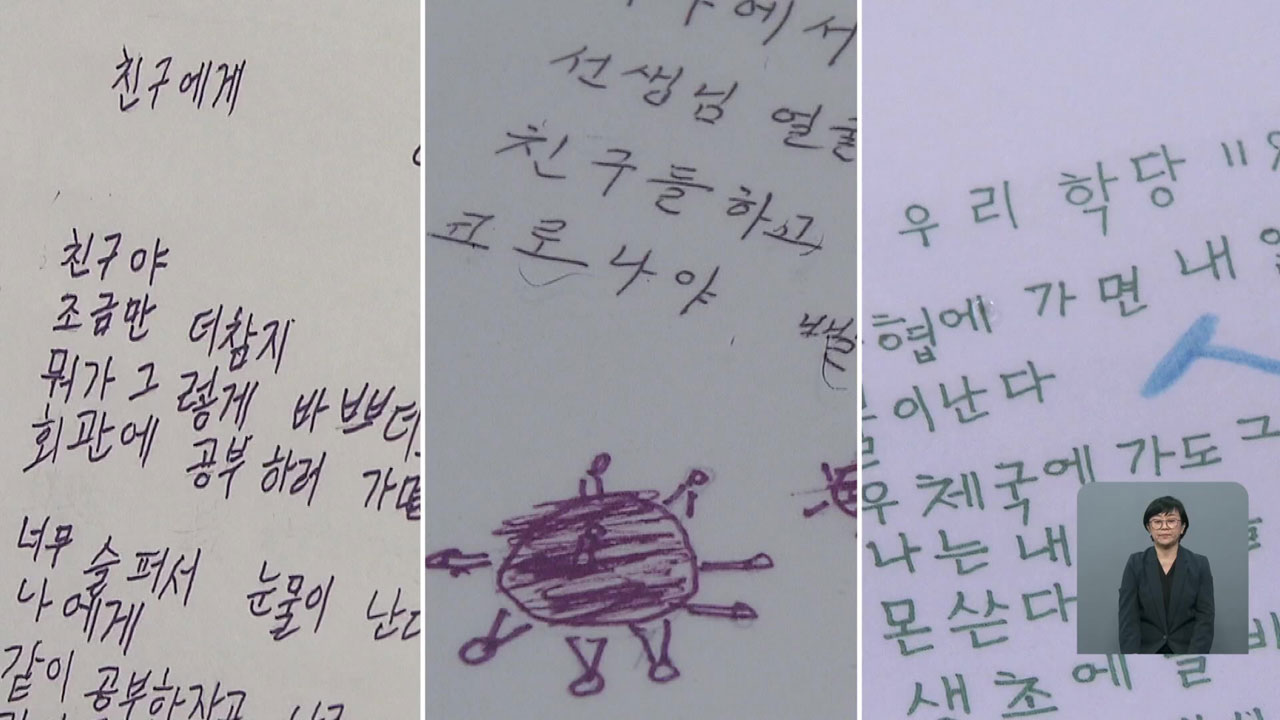 친구에게
친구야
조금만 더참지
뭐가 그 렇게 바쁘데
회관에 공부 하러 가면
너무 슬퍼서 눈물이 난다
나에게
같이 공부하자고
에서
선생님
친구들하고
코로나야
우리 학당
협에 가면 내
이난다
우체국에 가도 그
나는 내
몬쓴다
생초에